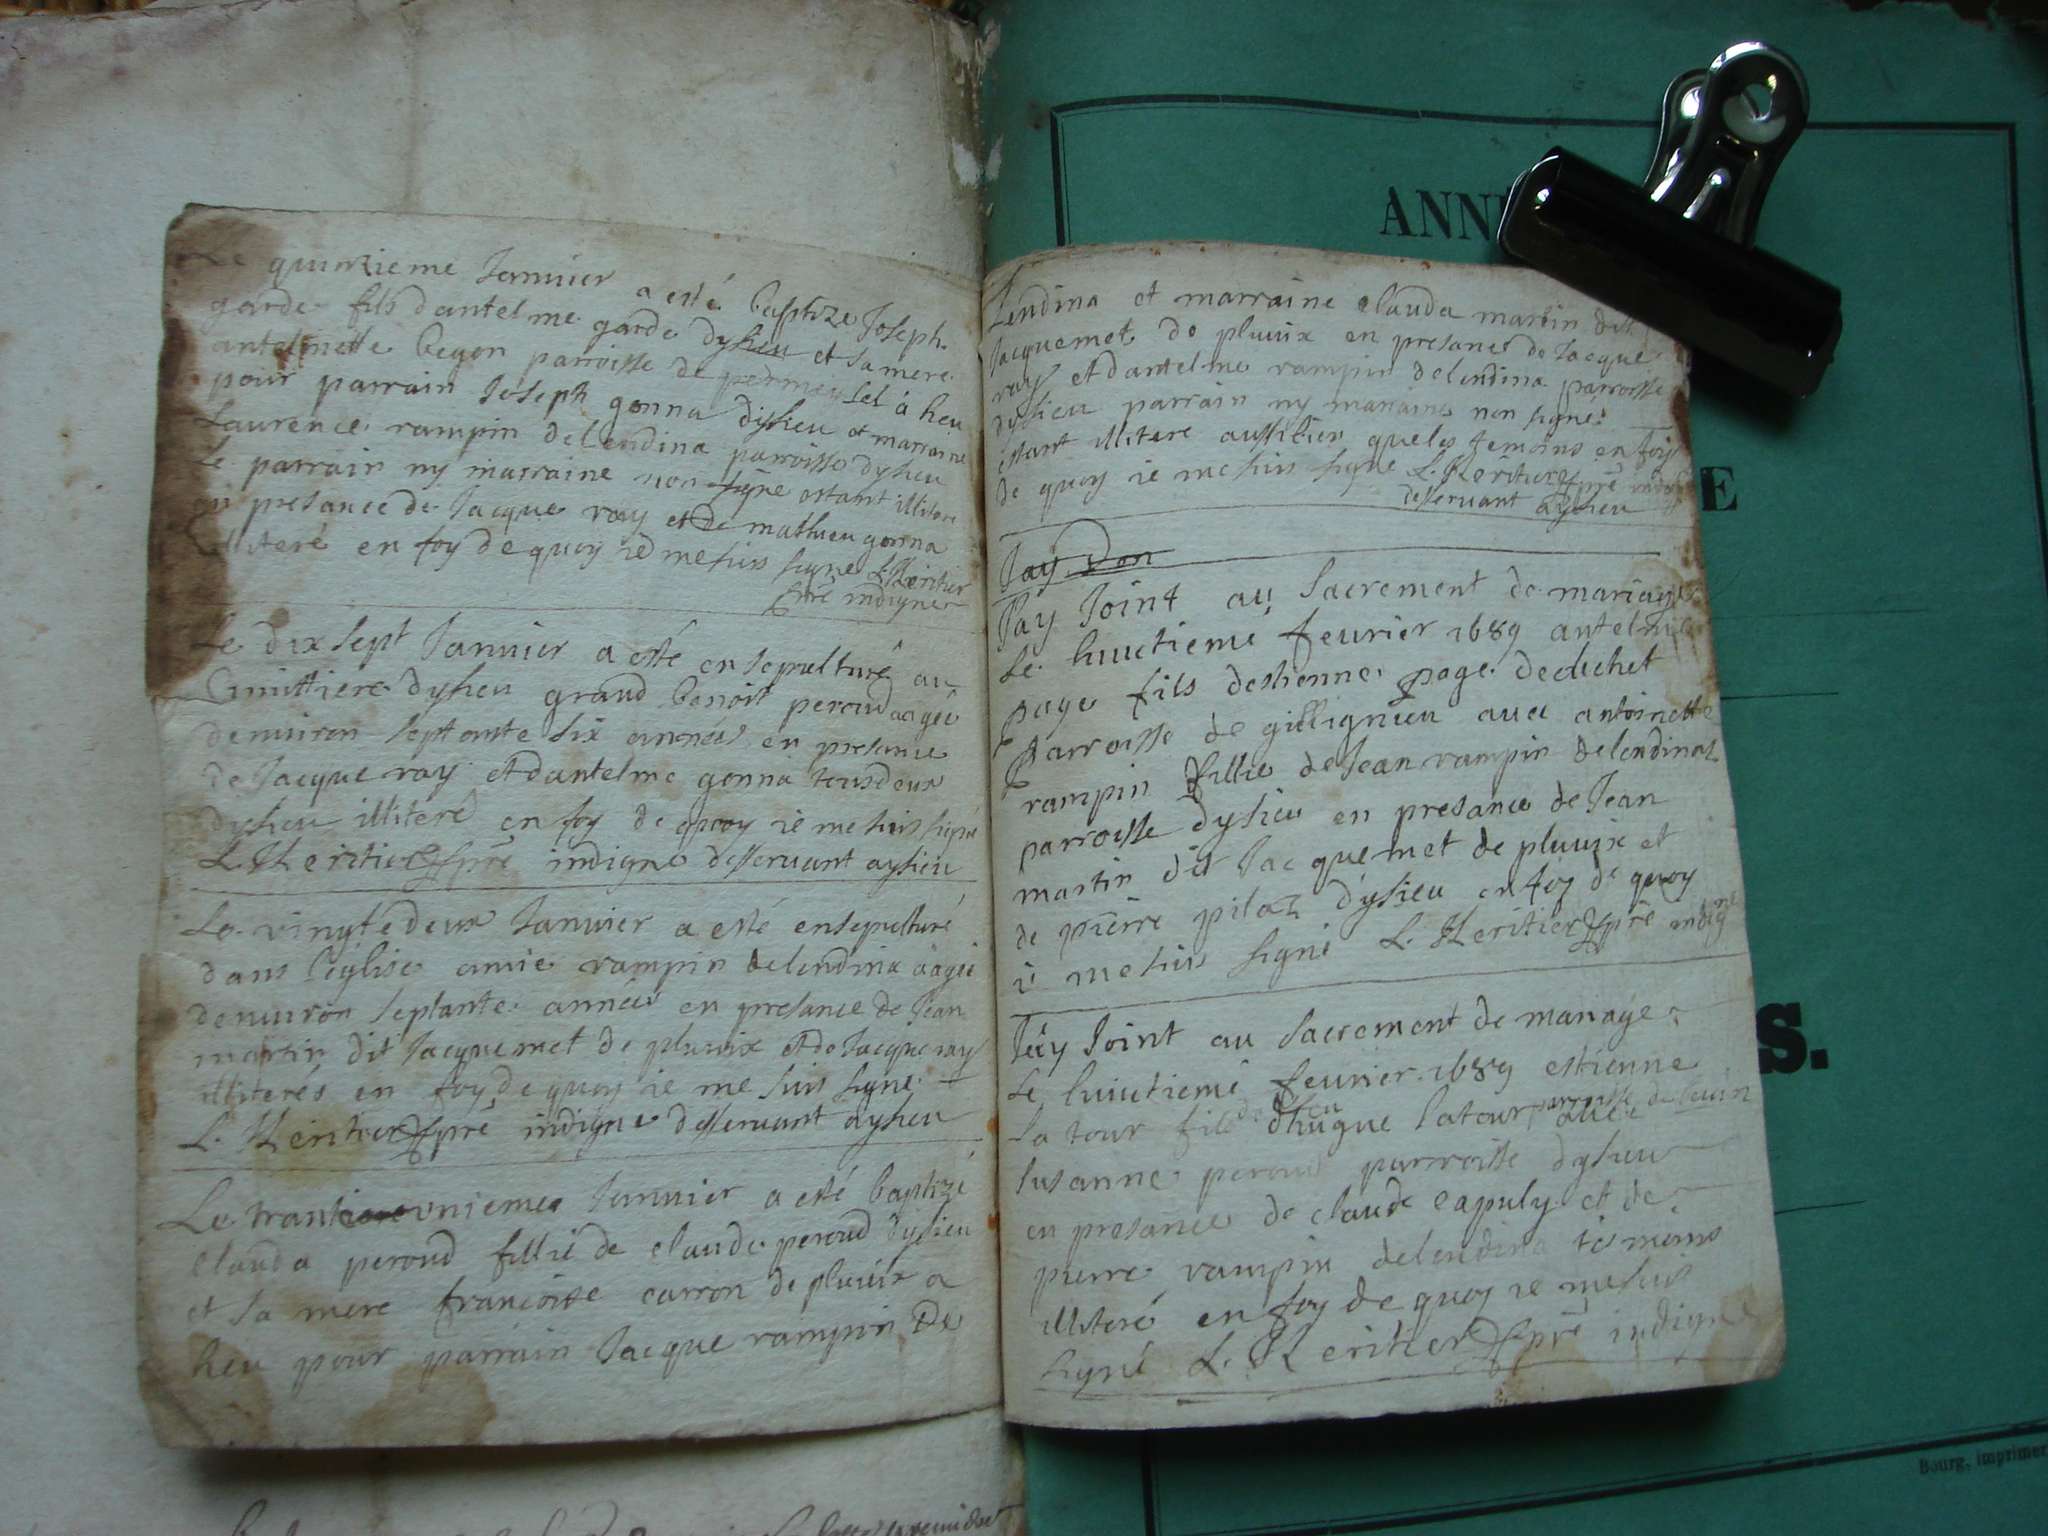 Le quinzieme Janvier a esté baptize Joseph
garde fils dantelme garde dysieu et sa mere
antelmette begon parroisse de à heu
pour parrain Joseph gonna dysieu et marraine
Laurence rampin delendina parroisse dysieu
Le parrain ny marraine non signe estant illitere
en presance de Jacque ray et de mathieu gonna
illiteré en foy de quoy ie me suis signe L. Heritier
pre indigne
Le dix sept Janvier a esté ensepulturé au
Cimittiere dysieu grand benoit peroud aagée
denviron septante six années en presance
de Jacque ray et dantelme gonna tous deux
dysieu illiteré en foy de quoy ie me suis signé
L. Heritier pre indigne desservant aysieu
Le vingtedeux Janvier a esté ensepulturé
dans l'église amie rampin delendina aagée
denviron septante années en presance de Jean
martin dit Jacquemet de pluvix et de Jacque ray
illiterés en foy de quoy ie me suis signe
L. Heritier pre indigne desservant aysieu
Le trant unieme Janvier a esté baptizé
Clauda peroud fillie de claude peroud dysieu
et sa mere francoise carron de pluvix a
heu pour parrain Jacque rampin De
Lendina et marraine clauda martin dit
Jacquemet de pluvix en presance de Jacque
ray et dantelme rampin delendina parroisse
dysieu parrain ny maraine non signe
estant illitere aussibien que les temoins en foy
de quoy ie me suis signe L. Heritier pre indigne
desservant aysieu
Jay Don
Jay Joint au sacrement de mariage
Le huictieme fevrier 1689 antelme
page fils destienne page deduchet
parroisse de gillignieu avec antoinette
rampin fillie de Jean rampin delendinaz
parroisse dysieu en presance de Jean
martin dit Jacquemet de pluvix et
de pierre pilaz dysieu en foy de quoy
ie me suis signé L. Heritier pre indigne
Jay Joint au sacrement de mariage
Le huictieme fevrier 1689 estienne
parroisse de
La tour fils dhugue latour avec
susanne peroud parroisse dysieu
en presance de claude capuly et de
pierre rampin delendina tesmoins
illiteré en foy de quoy ie me suis
signé L. Heritier pre indigne
ANN
E
S.
Bourg, imprimer